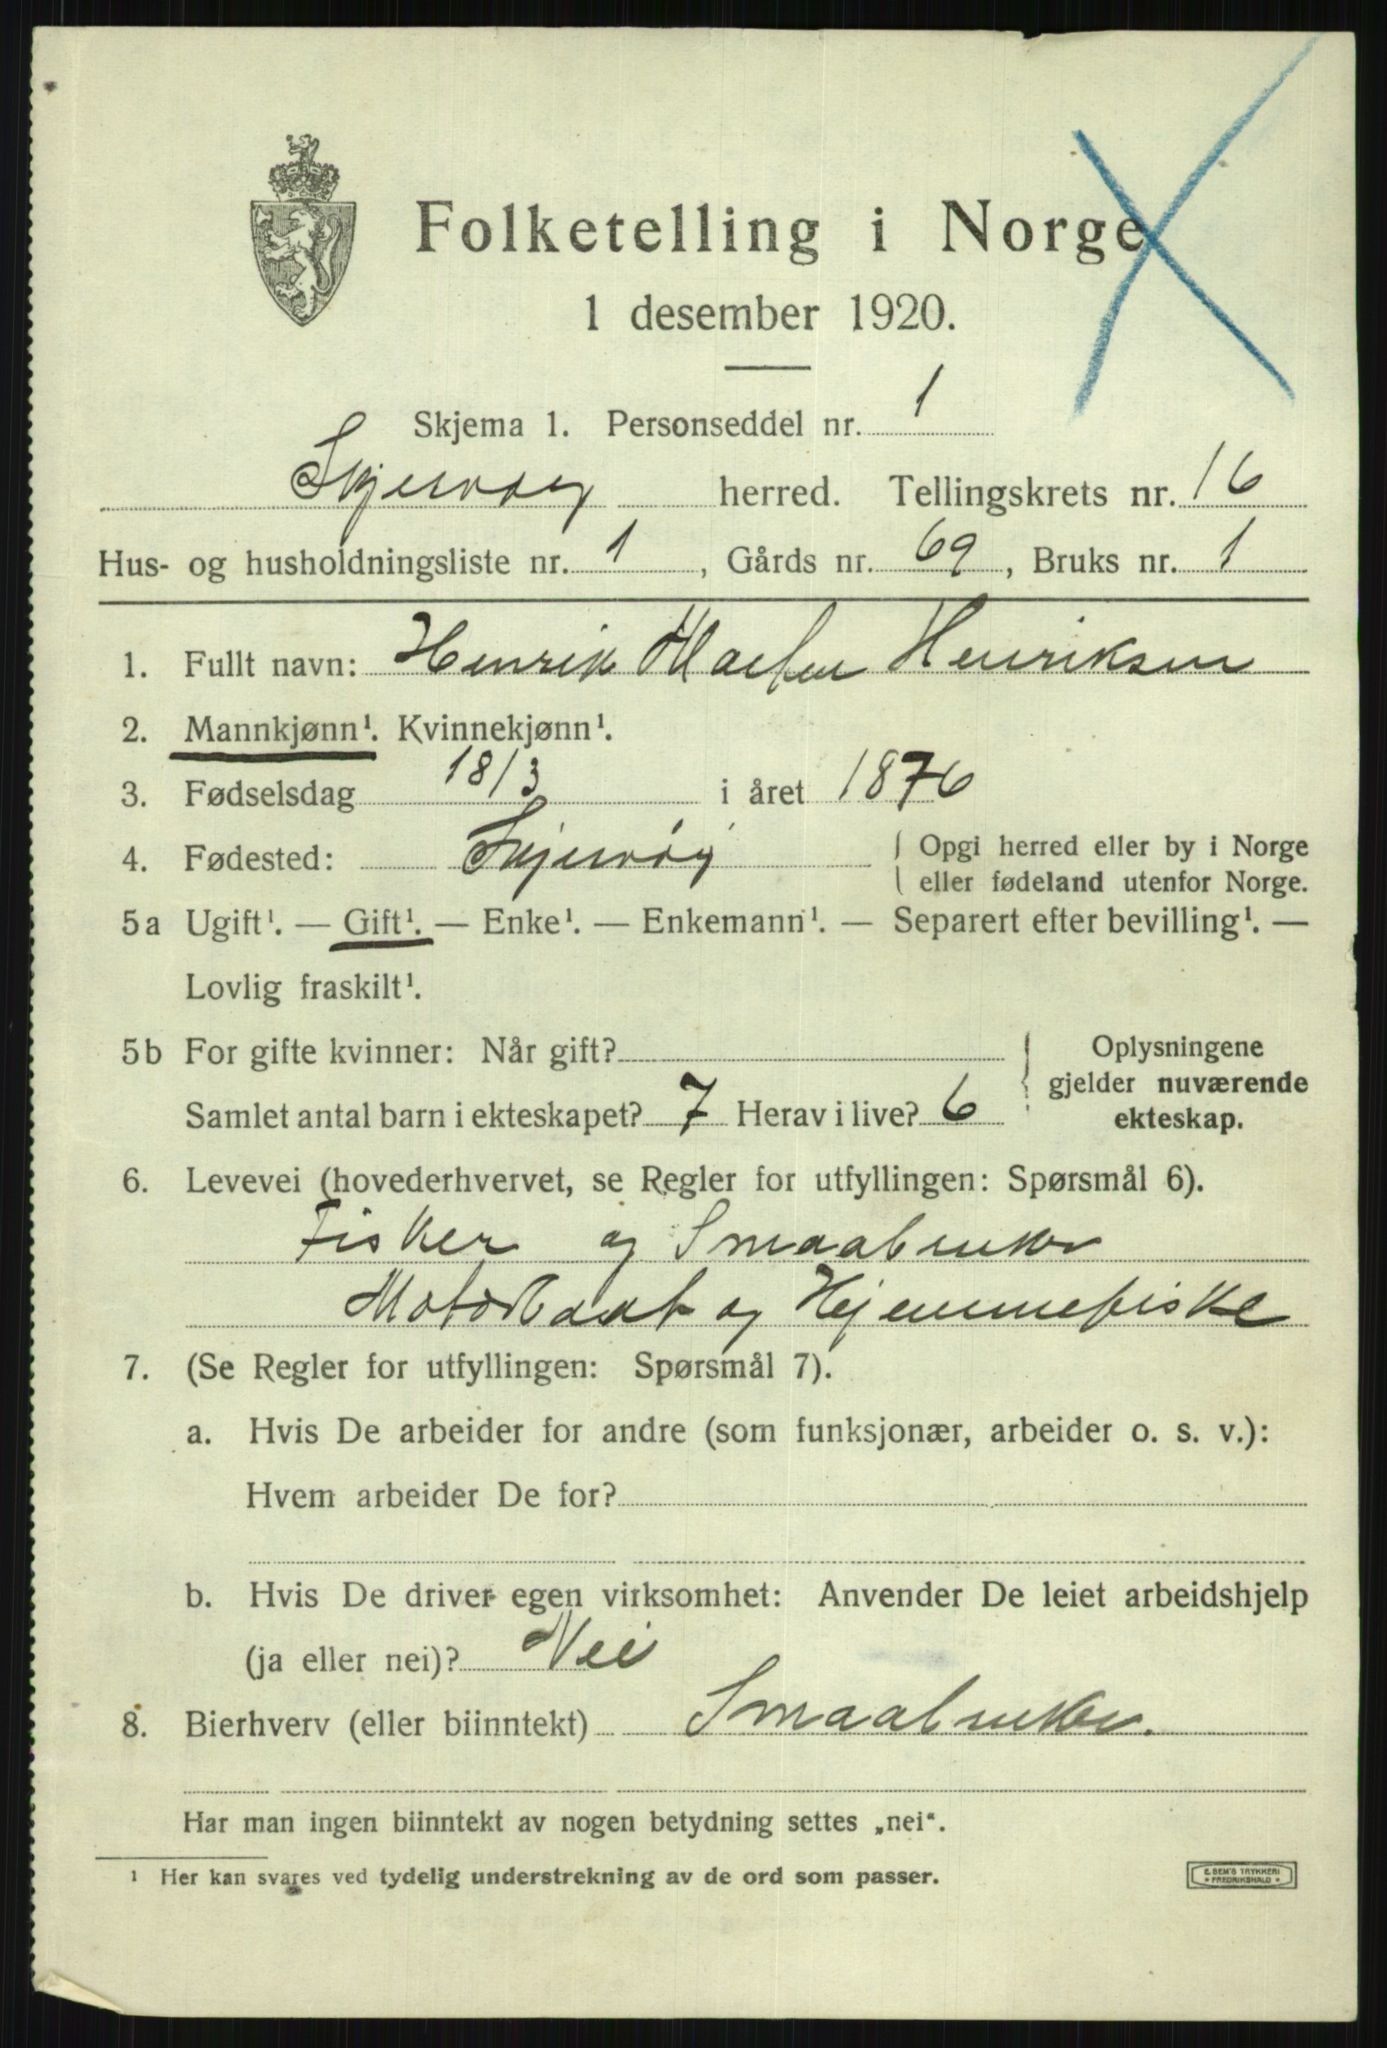 Folketelling i Norge
1 desember 1920.
Skjema 1. Personseddel nr. 1
Skjervøy herred. Tellingskrets nr. 16
Hus- og husholdningsliste nr. 1, Gårds nr. 69, Bruks nr. 1
1. Fullt navn: Henrik Henriksen
2. Mannkjønn¹. Kvinnekjønn¹.
3. Fødselsdag 18/3 i året 1876
4. Fødested: Skjervøy { Opgi herred eller by i Norge
eller fødeland utenfor Norge.
5a Ugift¹. — Gift¹. — Enke¹. — Enkemann¹. — Separert efter bevilling¹. —
Lovlig fraskilt¹.
5b For gifte kvinner: Når gift?
Samlet antal barn i ekteskapet? 7 Herav i live? 6
} Oplysningene
gjelder nuværende
ekteskap.
6. Levevei (hovederhvervet, se Regler for utfyllingen: Spørsmål 6).
Fisker og Smaabruker
Motorbaat og Hjemmefiske
7. (Se Regler for utfyllingen: Spørsmål 7).
a. Hvis De arbeider for andre (som funksjonær, arbeider o. s. v.):
Hvem arbeider De for?
b. Hvis De driver egen virksomhet: Anvender De leiet arbeidshjelp
(ja eller nei)? Nei
8. Bierhverv (eller biinntekt) Smaabruker.
Har man ingen biinntekt av nogen betydning settes „nei“.
¹ Her kan svares ved tydelig understrekning av de ord som passer.
E. SEM'S TRYKKERI
* FREDRIKSHALD *